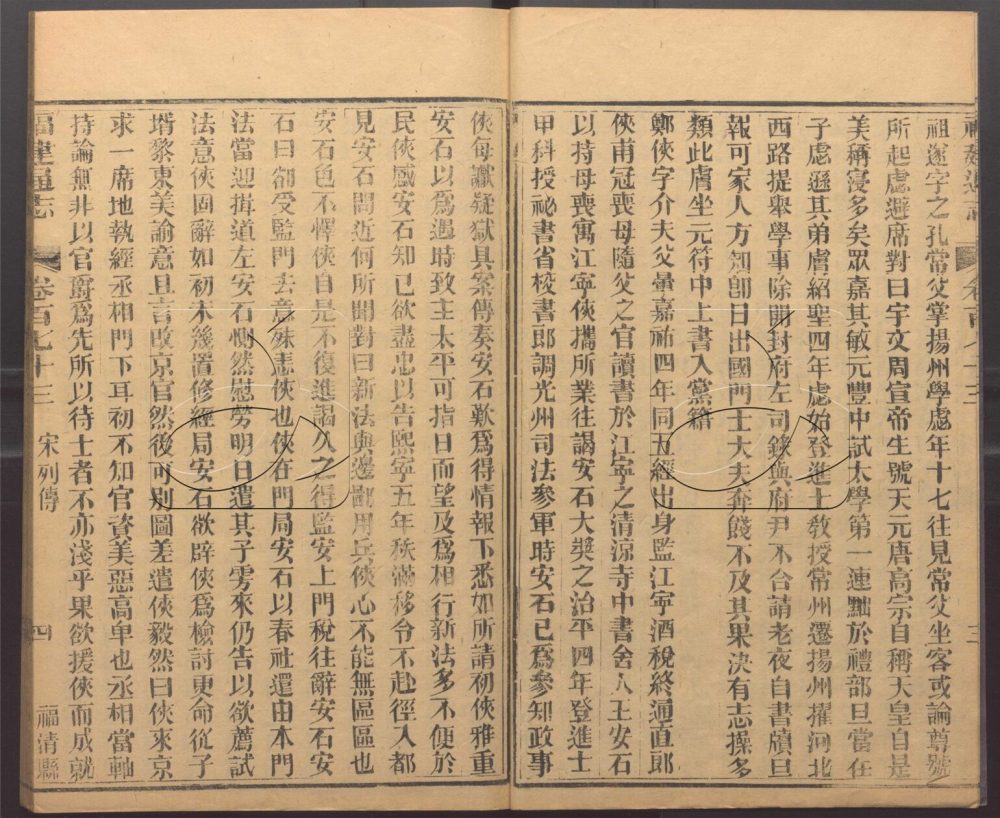 祖遂字之孔常父掌揚州學處年十七往見常父坐客或論尊號
所起處避席對曰宇文周宣帝生號天元唐高宗自稱天皇自是
美稱寖多矣眾嘉其敏元豐中試太學第一連黜於禮部旦當任
子處遜其弟膚紹聖四年處始登進士教授常州遷揚州擢河北
西路提舉學事除開封府左司錄與府尹不合請老夜自書牘旦
報可家人方知卽日出國門士大夫奔餞不及其果決有志操多
類此膚坐元符中上書入黨籍
鄭俠字介夫父暈嘉祐四年同五經出身監江寧酒稅終通直郎
俠甫冠喪母隨父之官讀書於江寧之清涼寺中書舍人王安石
以持母喪寓江寧俠攜所業往謁安石大獎之治平四年登進士
甲科授祕書省校書郎調光州司法參軍時安石已爲參知政事
俠每讞疑獄具案傳奏安石歎爲得情報下悉如所請初俠雅重
安石以爲遇時致主太平可指日而望及爲相行新法多不便於
民俠感安石知已欲盡忠以告熙寧五年秩滿移令不赴徑入都
見安石問近何所聞對曰新法與邊鄙用兵俠心不能無區區也
安石色不懌俠自是不復進謁久之得監安上門稅往辭安石安
石曰卻受監門去意殊恚俠也俠在門局安石以春社還由本門
法當迎揖道左安石惻然慰勞明日遣其子雱來仍告以欲薦試
法意俠固辭如初未幾置修經局安石欲辟俠爲檢討更命從子
壻黎東美諭意且言改京官然後可別圖差遣俠毅然曰俠來京
求一席地執經丞相門下耳初不知官資美惡高卑也丞相當軸
持論無非以官爵爲先所以待士者不亦淺乎果欲援俠而成就
福建通志
卷百九十三
宋列傳
四
福清縣